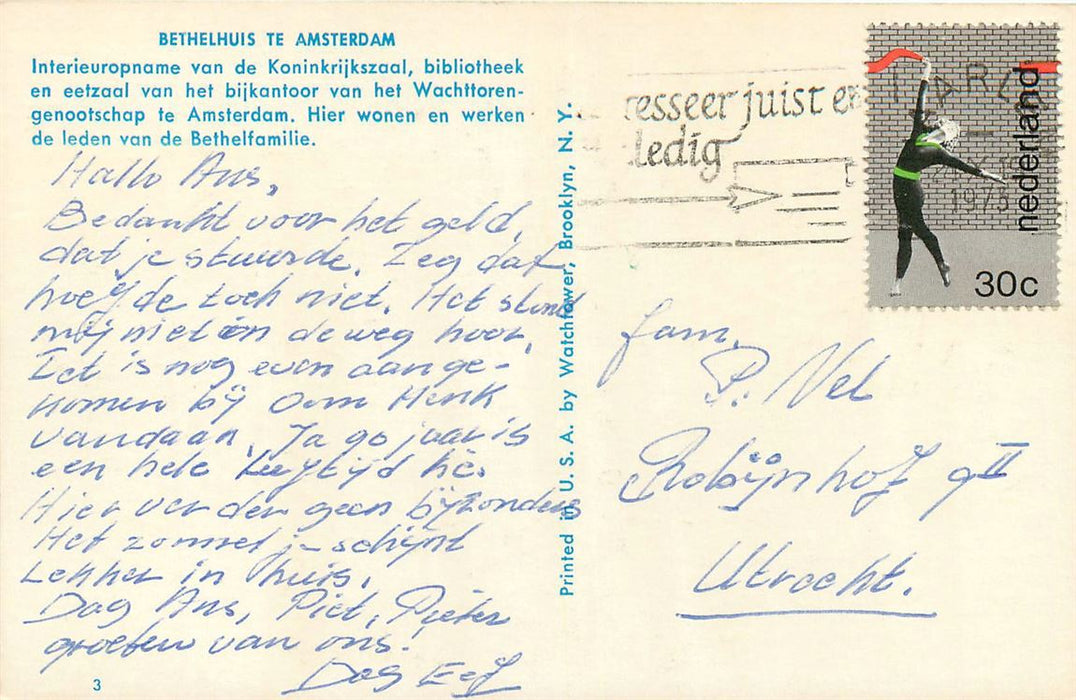 BETHELHUIS TE AMSTERDAM
Interieuropname van de Koninkrijkszaal, bibliotheek
en eetzaal van het bijkantoor van het Wachttoren-
genootschap te Amsterdam. Hier wonen en werken
de leden van de Bethelfamilie.
Hallo Ans,
Bedankt voor het geld,
dat je stuurde. Zeg dat
hoefde toch niet. Het stond
mij niet in de weg hoor.
Het is nog even aange-
komen bij Oom Henk
vandaan. Ja 90 jaar is
een hele leeftijd hè.
Hier verder geen bijzonders
Het zonnetje schijnt
lekker in huis.
Dag Ans, Piet, Pieter
groeten van ons.
Dag Eef
3
Printed in U. S. A. by Watchtower, Brooklyn, N. Y.
resseer juist en
ledig
1973
nederland
30c
fam.
P. Nel
Robijnhof 9 II
Utrecht.